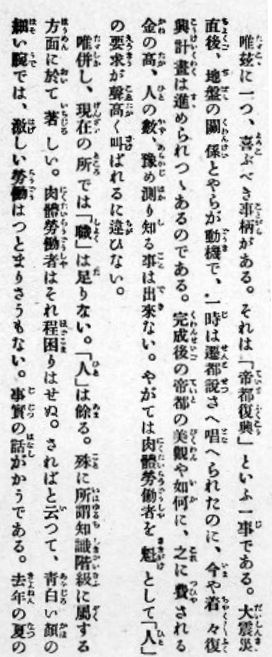 唯茲に一つ、喜ぶべき事柄がある。それは「帝都復興」といふ一事である。大震災
直後、地盤の關係とやらが動機で、一時は遷都説さへ唱へられたのに、今や着々復
興計畫は進められつゝあるのである。完成後の帝都の美觀や如何に、之に費される
金の高、人の數、豫め測り知る事は出來ない。やがては肉體勞働者を魁として「人」
の要求が聲高く叫ばれるに違ひない。
唯併し、現在の所では「職」は足りない。「人」は餘る。殊に所謂知識階級に屬する
方面に於て著しい。肉體勞働者はそれ程困りはせぬ。さればと云つて、青白い顏の
細い腕では、激しい勞働はつとまりさうもない。事實の話がかうである。去年の夏の